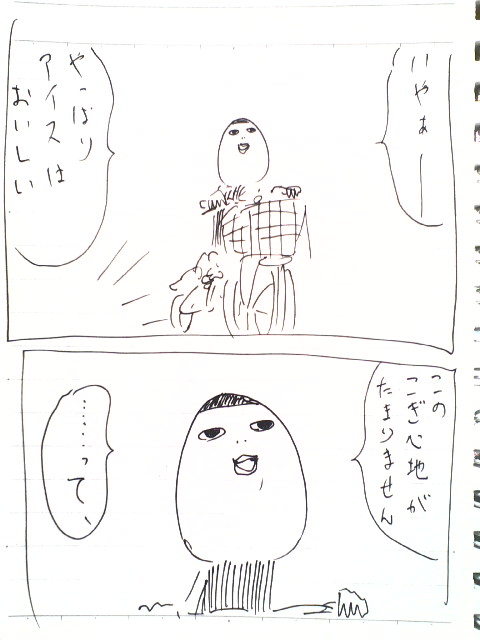 いやぁー
やっぱり
アイスは
おいしい
この
こぎ心地が
たまりません
……って、